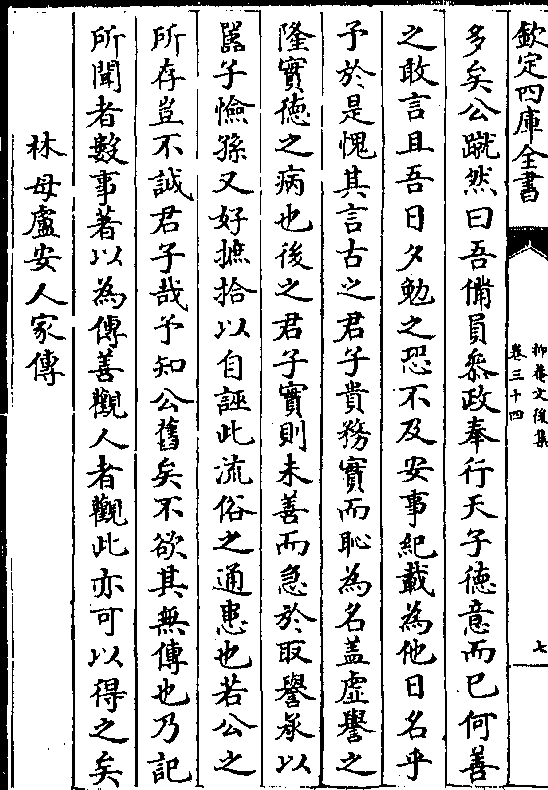 欽定四庫全書
抑菴文後集
卷三十四
七
多矣公蹴然曰吾備員叅政奉行天子德意而已何善
之敢言且吾日夕勉之恐不及安事紀載為他日名乎
予於是愧其言古之君子貴務實而恥為名盖虛譽之
隆實德之病也後之君子實則未善而急於取譽汲以
嚚子憸孫又好摭拾以自誣此流俗之通患也若公之
所存豈不誠君子哉予知公舊矣不欲其無傳也乃記
所聞者數事著以為傳善觀人者觀此亦可以得之矣
林母盧安人家傳